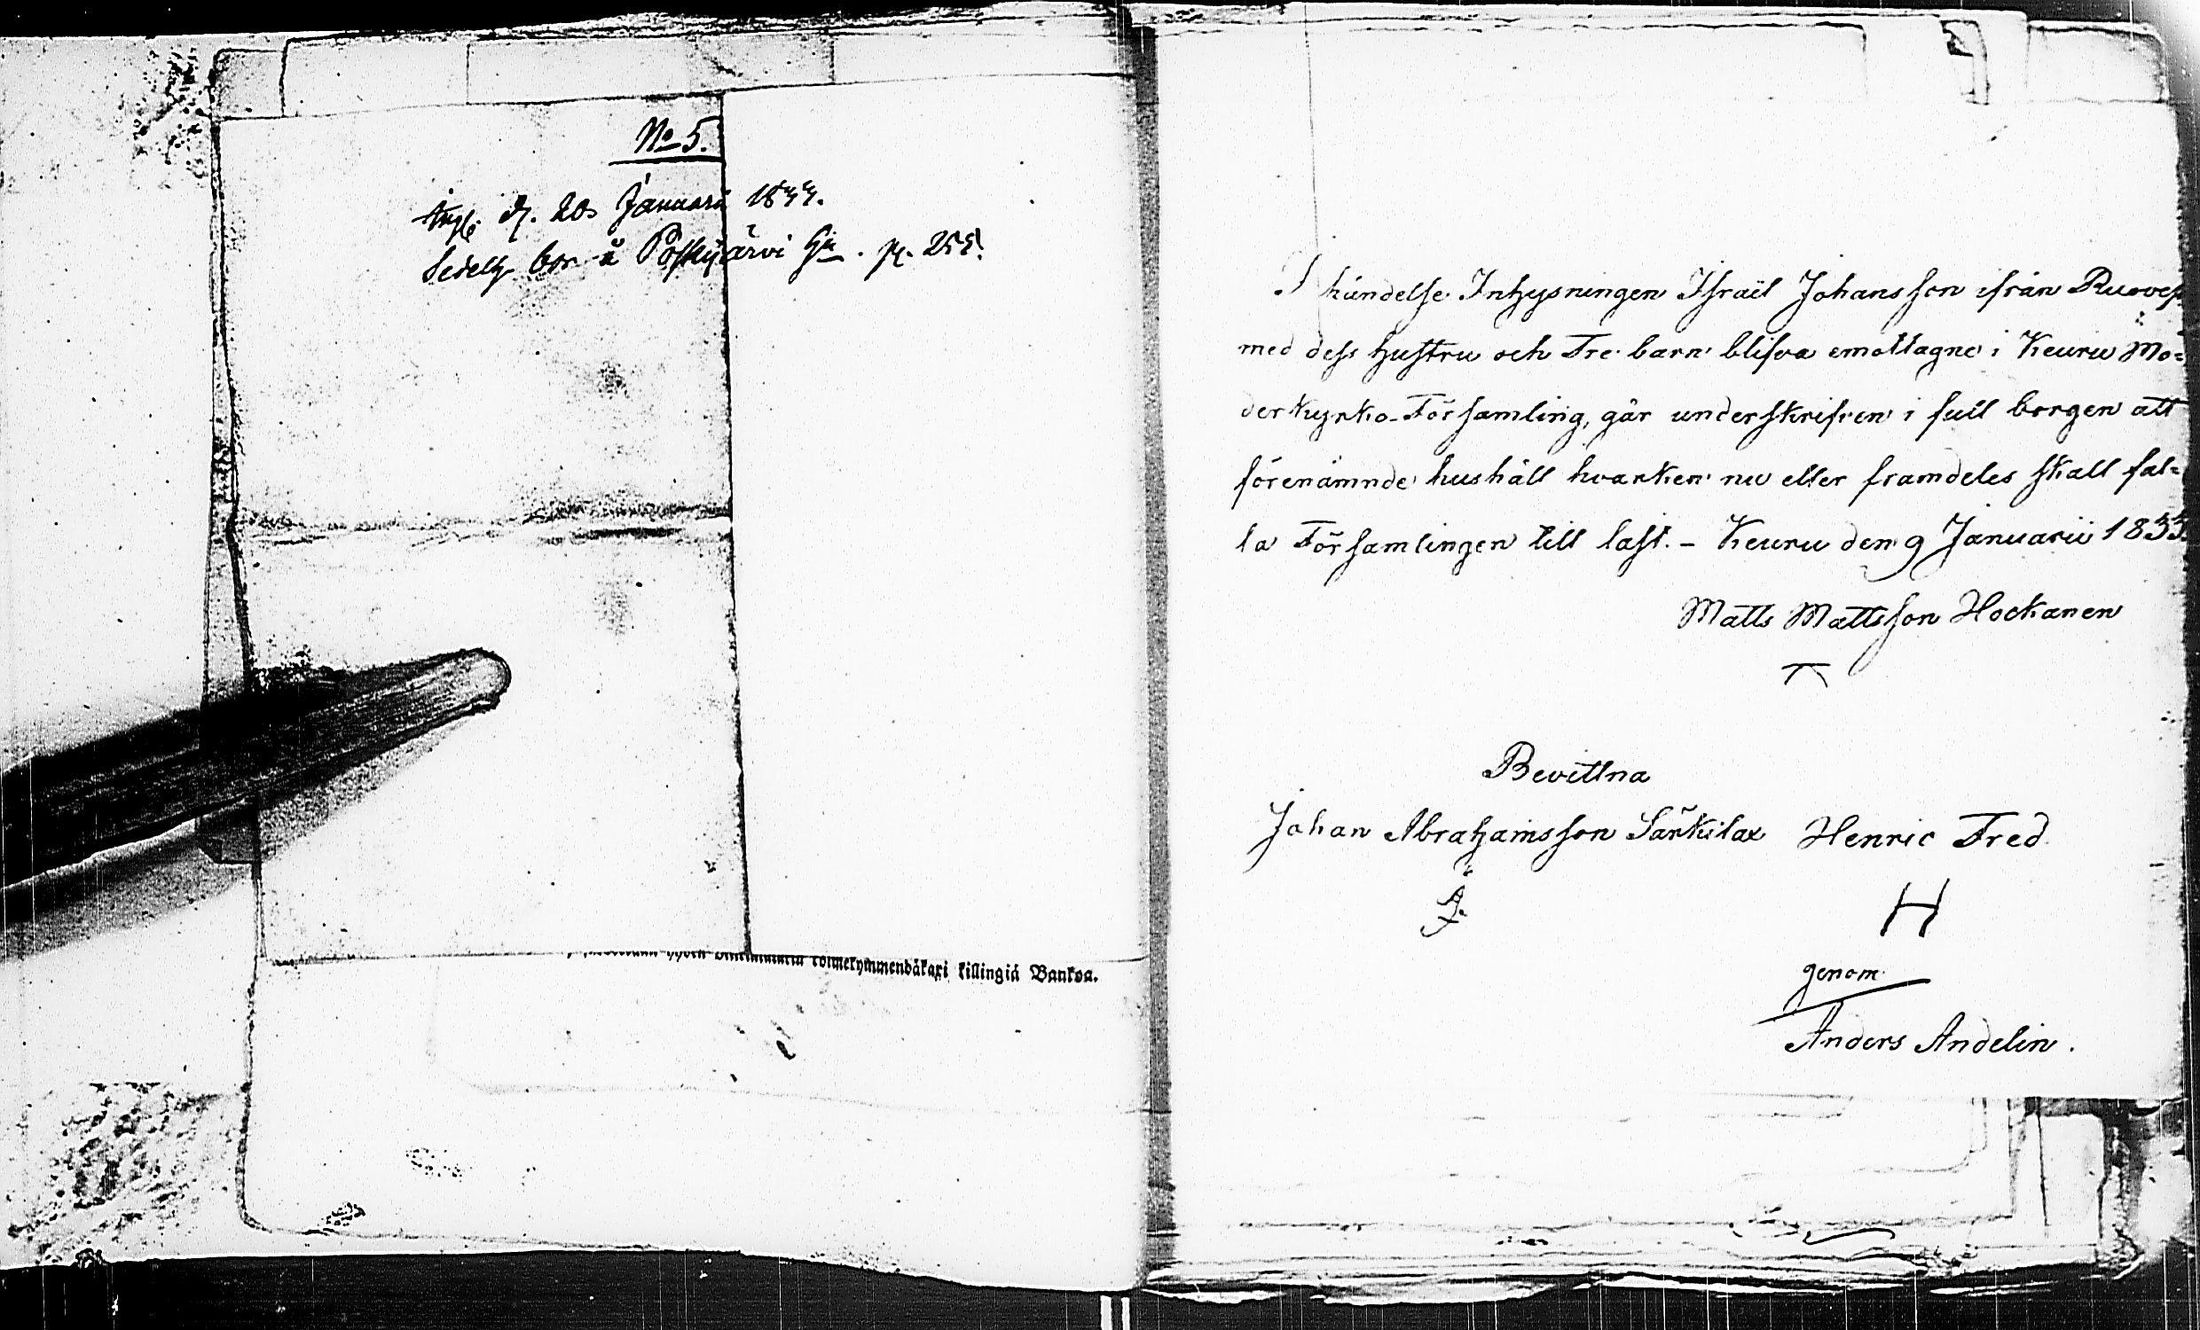 No 5.
d. 20 Januari 1833.
bor å Pöyhijärvi pag. 255.
killingiä Bankoa.
I händelse Inhysningen Israël Johansson ifrån Ruoves
med dess hustru och Tre barn blifva emottagne i Keuru Mo=
derkyrko-Församling, går underskrifven i full borgen att
förenämnde hushåll hvarken nu eller framdeles skall fal=
la Församlingen till last. – Keuru den 9 Januarii 1833.
Matts Mattsson Hockanen
Bevittna
Johan Abrahamsson Särkilax Henric Fred
H
genom
Anders Andelin.